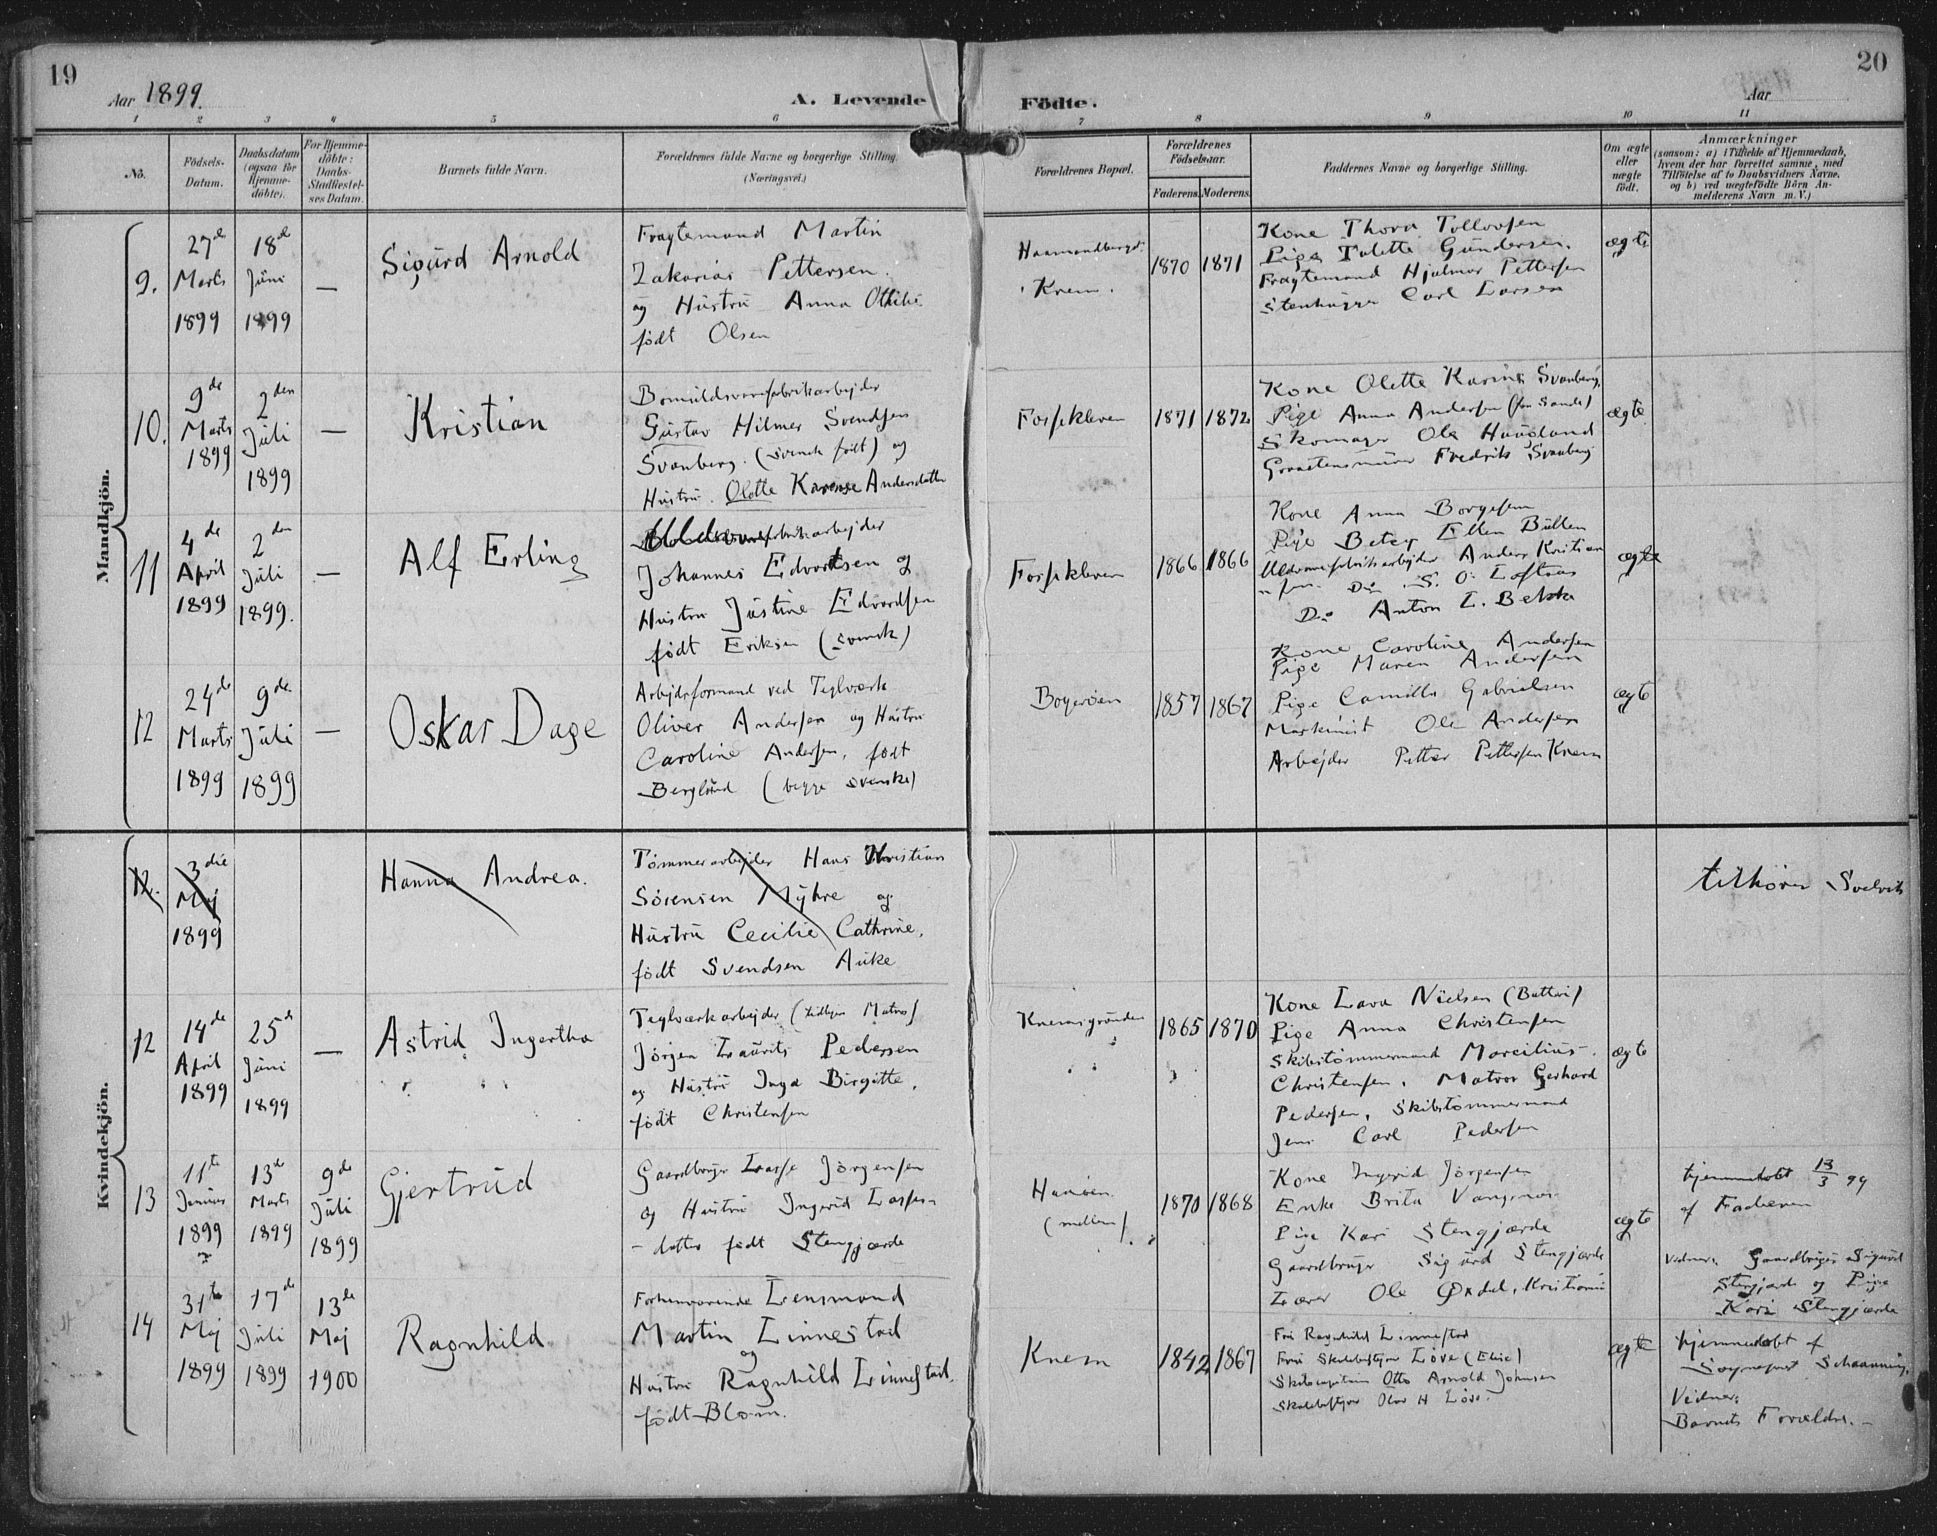 19
Aar 1899.
A. Levende
Födte.
Aar
20
1 2 3 4 5 6 7 8 9 10 11
No.
Födsels-
Datum.
Daabsdatum
(ogsaa for
Hjemme-
döbte).
For Hjemme-
döbte:
Daabs-
Stadfæstel-
ses Datum.
Barnets fulde Navn.
Forældrenes fulde Navne og borgerlige Stilling.
(Næringsvei.)
Forældrenes Bopæl.
Forældrenes
Födselsaar.
Faderens. Moderens.
Faddernes Navne og borgerlige Stilling.
Om ægte
eller
uægte
födt.
Anmærkninger
(saasom: a) i Tilfælde af Hjemmedaab,
hvem der har forrettet samme, med
Tilföielse af to Daabsvidners Navne,
og b) ved uægtefödte Börn An-
melderens Navn m. V.)
Mandkjön.
9.
27de
Marts
1899
18de
Juni
1899
—
Sigurd Arnold
Fragtemand Martin
Zakarias Pettersen.
og Hustru Anna Othilie
født Olsen
Knem.
1870 1871
Kone Thora Tollovsen
Pige Tolette Gundersen.
Fragtemand Hjalmar Pettersen
Stenhugger Carl Larsen
ægte
10.
9de
Marts
1899
2den
Juli
1899
—
Kristian
Bomuldsvarefabrikarbejder
Gustav Hilmer Svendsen
Svanberg. (svensk født) og
Hustru. Olette Karense Andersdatter
Fossekleven
1871 1872
Kone Olette Karine Svanberg.
Pige Anna Andersen (fra Sande)
Skomager Ole Haugland
Fredrik Svanberg
ægte
11
4de
April
1899
2den
Juli
1899.
—
Alf Erling
Johannes Edvardsen og
Hustru Justine Edvardsen
født Eriksen (svensk)
Fossekleven
1866 1866
Kone Anna Borgesen
Pige Betsy Ellen Bullen
Uldvarefabrikarbejder Anders Kristian
Do S. O. Loftsaas
Do Anton L. Bekka
ægte
12
24de
Marts
1899
9de
Juli
1899
—
Oskar Dage
Arbejdsformand ved Teglværk
Oliver Andersen og Hustru
Caroline Andersen, født
Berglund (begge svenske)
Bogerøen
1857 1867
Kone Caroline Andersen
Pige Maren Andersen
Pige Camilla Gabrielsen
Maskinist Ole Andersen
Arbejder Petter Pettersen Knem
ægte
Kvindekjön.
12.
3die
Maj
1899
Hanna Andrea.
Tømmerarbejder Hans Kristian
Sörensen Myhre og
Hustru Cecilie Cathrine,
født Svendsen Auke
tilhører Svelvik
12
14de
April
1899
25de
Juni
1899
—
Astrid Ingertha
Teglværkarbejder (tidligere Matros)
Jørgen Laurits Pedersen
og Hustru Inga Birgitte,
født Christensen
Knemsgrunden
1865 1870
Kone Lava Nielsen (Batteri)
Pige Anna Christensen
Skibstømmermand Marcilius
Christensen. Matros Gerhard
Pedersen, Skibstømmermand
Jens Carl Pedersen
ægte
13
11te
Januar
1899
13de
Marts
1899
9de
Juli
1899
Gjertrud
Gaardbruger Lasse Jørgensen
og Hustru Ingerid Lasses-
datter født Stengjærde
Hanøen
(mellem)
1870 1868
Kone Ingerid Jørgensen
Enke Brita Vangsnes
Pige Kari Stengjærde
Gaardbruger Sigurd Stengjærde
Lærer Ole Øxdal, Kristiania
ægte
hjemmedøbt 13/3 99
af Faderen
Vidner: Gaardbruger Sigurd
Stengjærde og Pige
Kari Stengjærde
14
31te
Maj
1899
17de
Juli
1899
13de
Maj
1900
Ragnhild
Forhenværende Lensmand
Martin Linnestad
og
Hustru Ragnhild Linnestad.
født Blom.
Knem
1842 1867
Fru Ragnhild Linnestad
Frue Skolebestyrer Löve (Elise)
Skibscaptain Otto Arnold Johnsen
Skolebestyrer Olav H Löve.
ægte
hjemmedøbt af
Sogneprest Schaanning,
Vidner:
Barnets Forældre.—